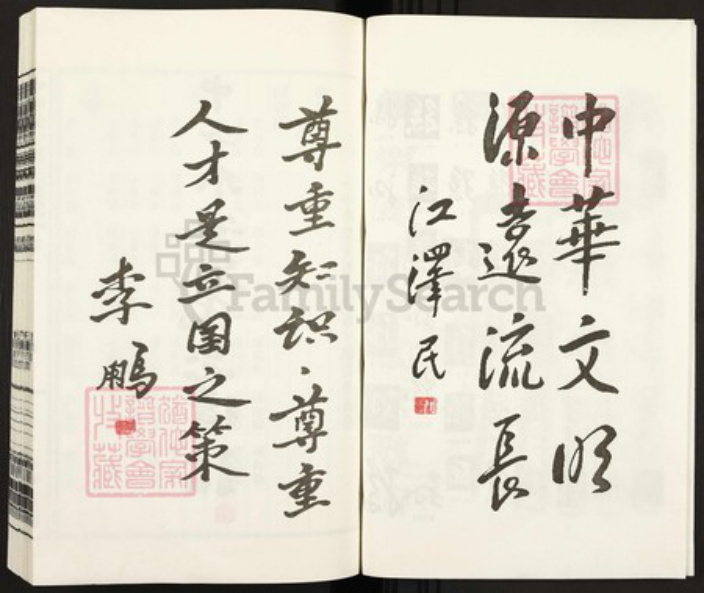 中華文明
源遠流長
江澤民
尊重知识、尊重
人才是立国之策
李鹏
FamilySearch